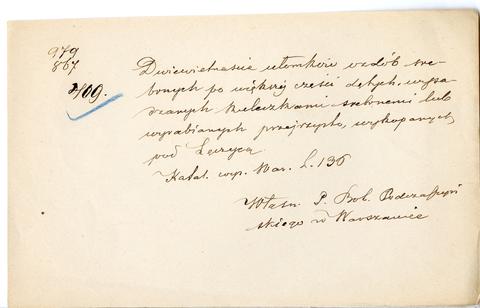 979
867
2/09.
Dwiewietrasie ułomków ozdób sre-
brnych po większej części dętych, wysa-
dzanych kuleczkami srebrnemi lub
wyrabianych przejrzysto, wykopanych
pod Łęczycą.
Katal. wyp. War. L. 136
Własn. P. Bol. Podczaszyń
skiego w Warszawie